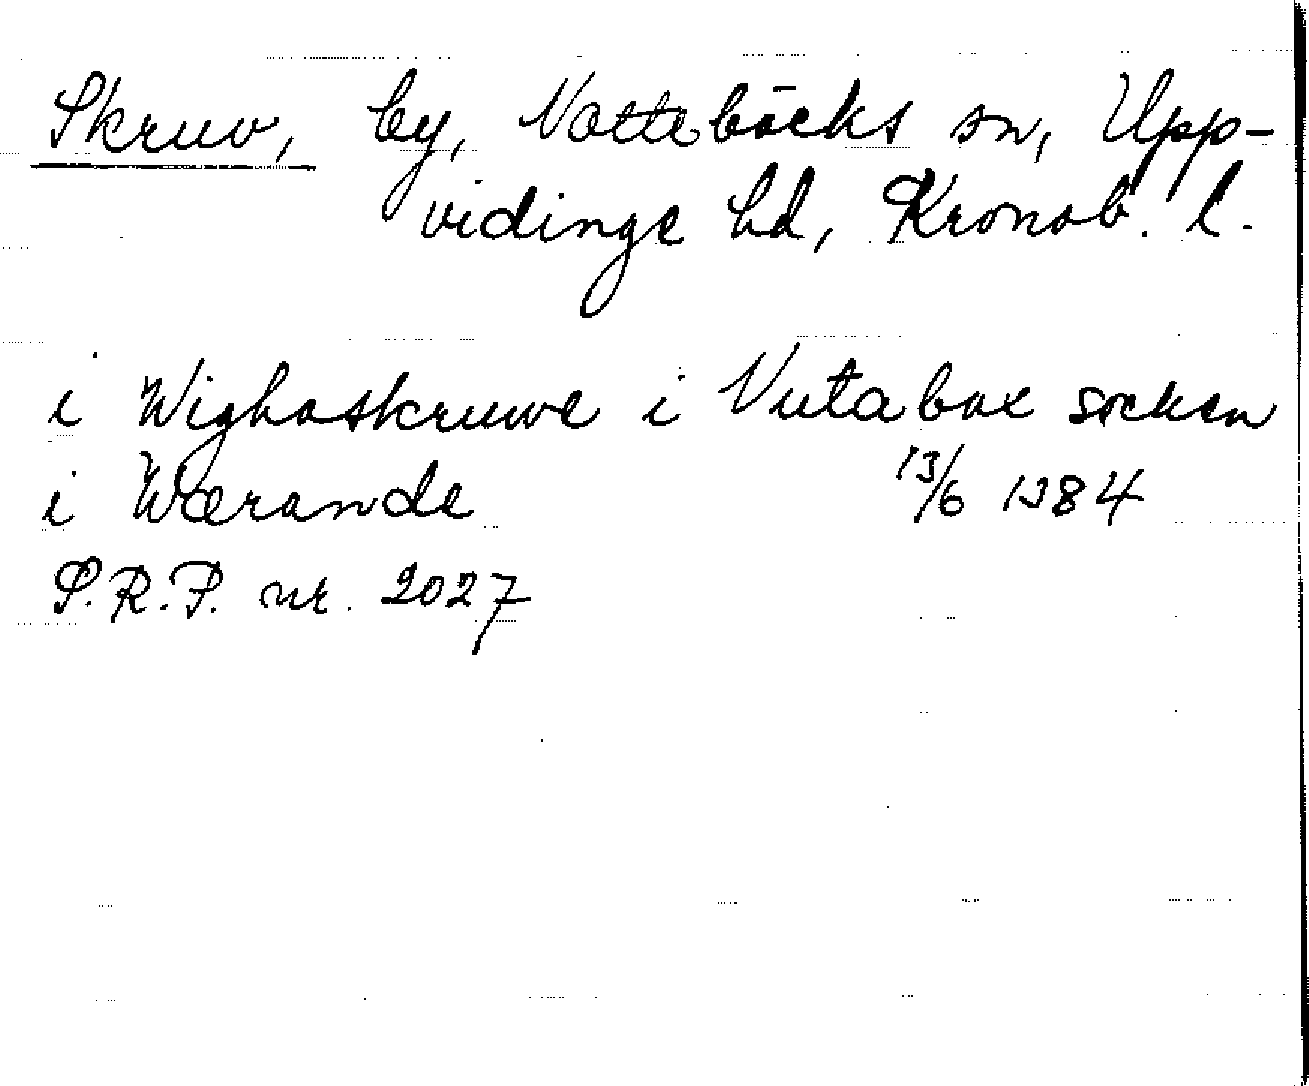 Skruv, by, Nottebäcks sn, Upp-
vidinge hd, Kronob. l.
i Wighaskruwe i Nutabæc socken
i Wærande 13/6 1384
S.R.P. nr. 2027